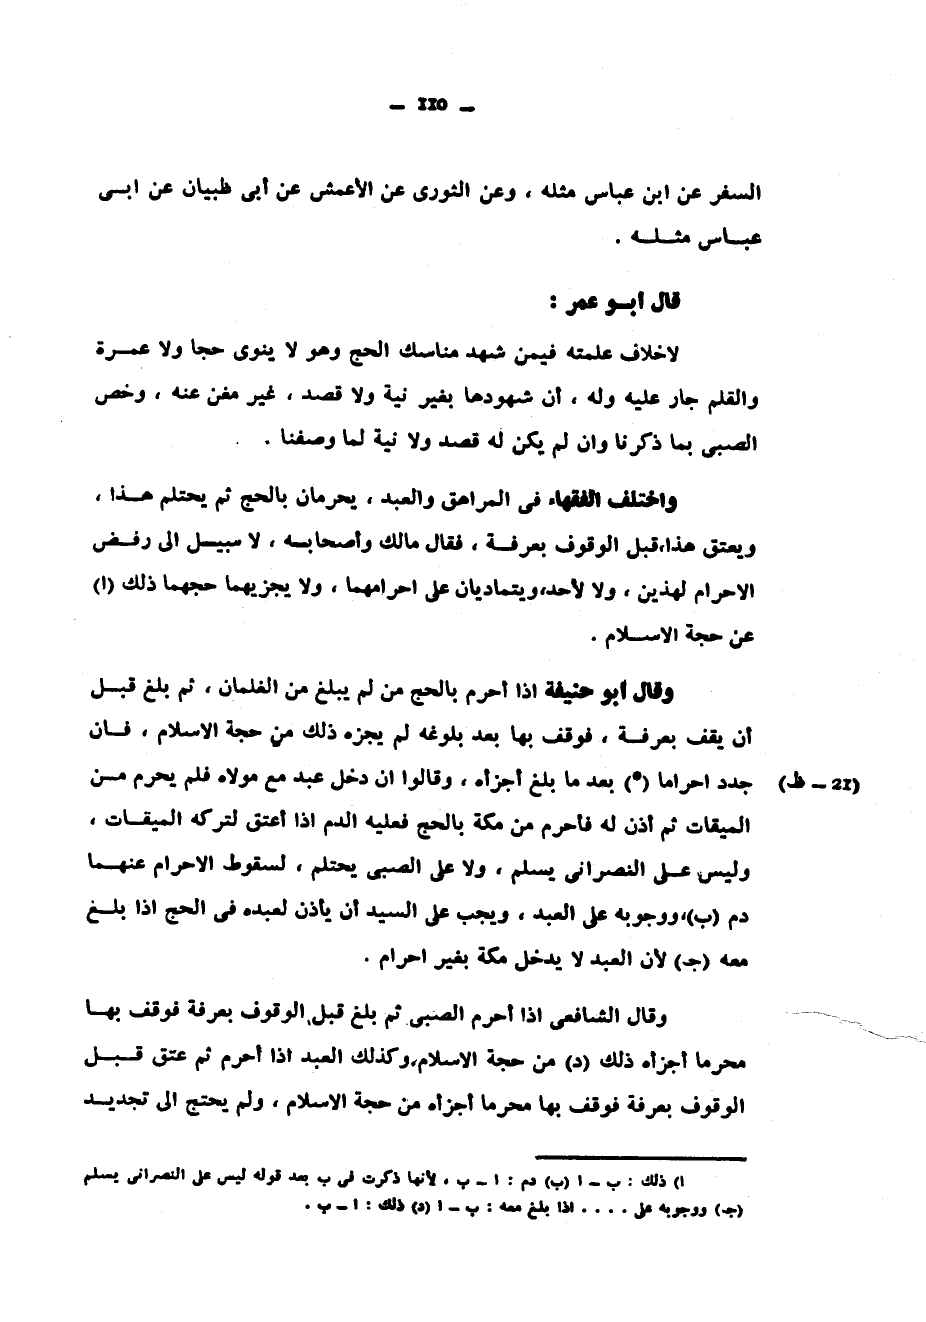 — 110 —
السفر عن ابن عباس مثله ، وعن الثورى عن الأعمش عن أبى ظبيان عن ابــى
عبــاس مثــلــه .
قال أبــو عمر :
لاخلاف علمته فيمن شهد مناسك الحج وهو لا ينوى حجا ولا عمــرة
والقلم جار عليه وله ، أن شهودها بغير نية ولا قصد ، غير مغن عنه ، وخص
الصبى بما ذكرنا وان لم يكن له قصد ولا نية لما وصفنا .
واختلف الفقهاء فى المراهق والعبد ، يحرمان بالحج ثم يحتلم هــذا ،
ويعتق هذا،قبل الوقوف بعرفــة ، فقال مالك وأصحابــه ، لا سبيــل الى رفــض
الاحرام لهذين ، ولا لأحد،ويتماديان على احرامهما ، ولا يجزيهما حجهما ذلك (ا)
عن حجة الاســلام .
وقال ابو حنيفة اذا أحرم بالحج من لم يبلغ من الغلمان ، ثم بلغ قبــل
أن يقف بعرفــة ، فوقف بها بعد بلوغه لم يجزه ذلك من حجة الاسلام ، فــان
جدد احراما (*) بعد ما بلغ أجزأه ، وقالوا ان دخل عبد مع مولاه فلم يحرم مــن
(21 — ظ)
الميقات ثم أذن له فأحرم من مكة بالحج فعليه الدم اذا أعتق لتركه الميقــات ،
وليس علــى النصرانى يسلم ، ولا على الصبى يحتلم ، لسقوط الاحرام عنهــما
دم (ب)،ووجوبه على العبد ، ويجب على السيد أن يأذن لعبده فى الحج اذا بلــغ
معه (جـ) لأن العبد لا يدخل مكة بغير احرام .
وقال الشافعى اذا أحرم الصبى ثم بلغ قبل الوقوف بعرفة فوقف بهــا
محرما أجزأه ذلك (د) من حجة الاسلام،وكذلك العبد اذا أحرم ثم عتق قــبــل
الوقوف بعرفة فوقف بها محرما أجزأه من حجة الاسلام ، ولم يحتج الى تجديــد
ا) ذلك : ب — ا (ب) دم : ا — ب ، لأنها ذكرت فى ب بعد قوله ليس على النصرانى يسلم
(جـ) ووجوبه على . . . . اذا بلغ معه : ب — ا (د) ذلك : ا — ب .